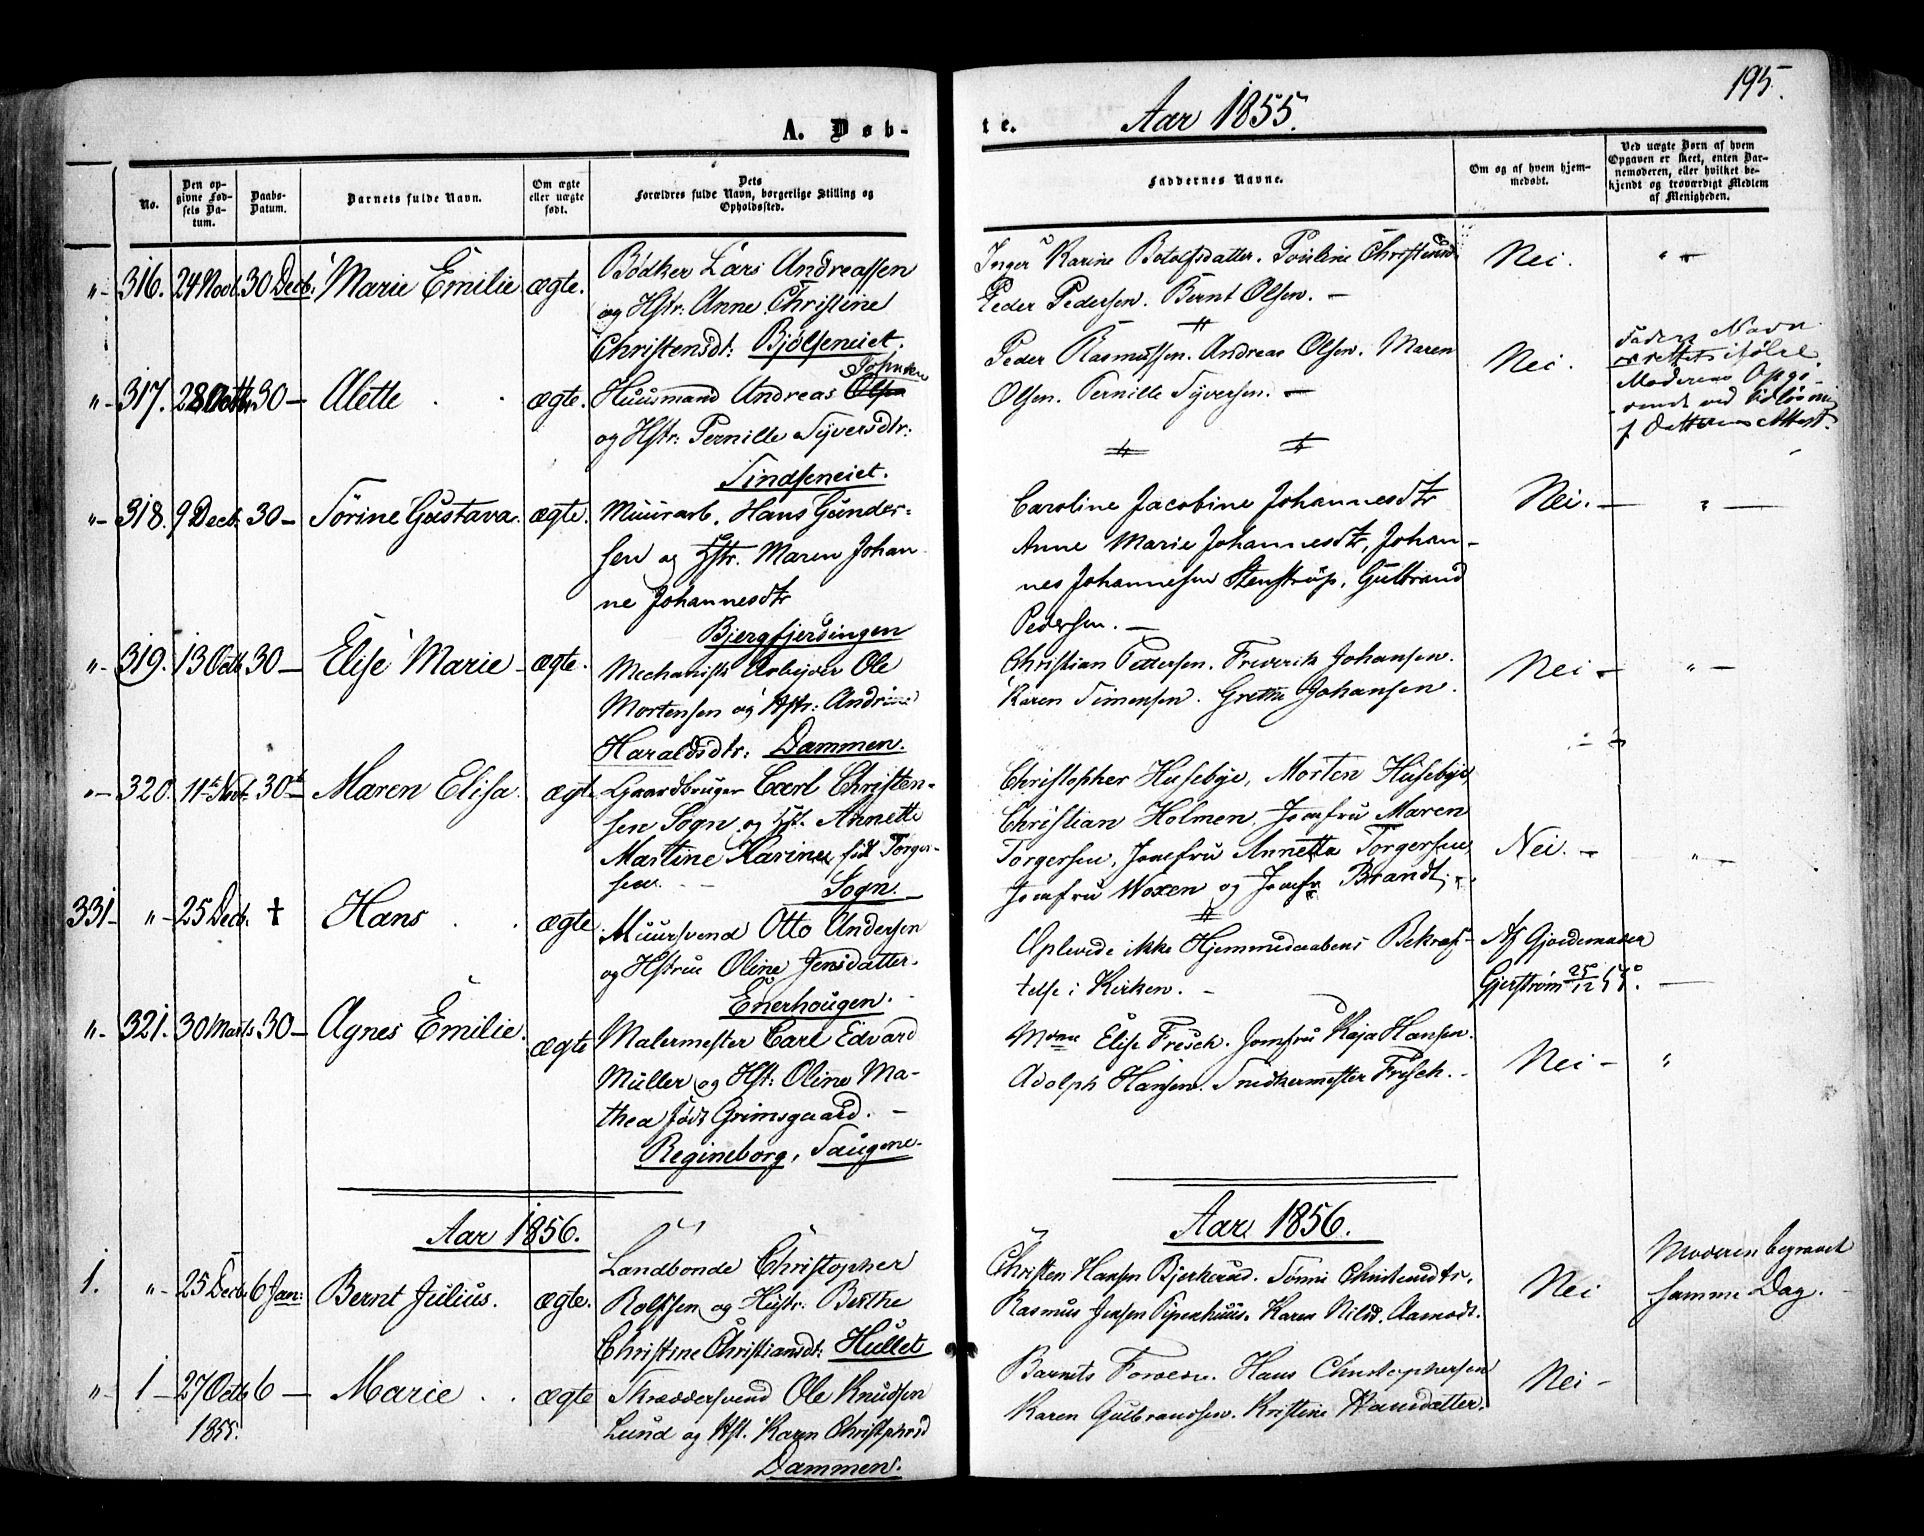 195.
A. Døb-
te.
Aar 1855.
No.
Den opgivne Fødsels Datum.
Daabs-Datum.
Barnets fulde Navn.
Om ægte eller uægte født.
Dets Forældres fulde Navn, borgerlige Stilling og Opholdssted.
Faddernes Navne.
Om og af hvem hjemmedøbt.
Ved uægte Børn af hvem Opgaven er skeet, enten Barnemoderen, eller hvilket bekjendt og troværdigt Medlem af Menigheden.
"- 316. 24 Novb. 30 Decb: Marie Emilie ægte. Bødker Lars Andreassen
og Hstr: Anne Christine
Christensdt: Bjølseneiet.
Inger Karine Botolfsdatter. Pouline Christensd
Peder Pedersen. Bernt Olsen. —
Nei. "-
"- 317. 28 Octbr 30 — Alette ægte. Huusmand Andreas Olsen Johnsen
og Hstr: Pernille Syversdtr:
Tindseneiet.
Peder Rasmussen. Andreas Olsen. Maren
Olsen. Pernille Syversen. —
Nei.
Faders Navn
rettet ifølge
Moderens Opgi-
vende ved
Datterens Attest.
"- 318. 9 Decb. 30 — Torine Gustava. ægte. Muurarb. Hans Gunder-
sen og Hstr. Maren Johan-
ne Johannesdtr
Bjergfjerdingen
Caroline Jacobine Johannesdtr
Anne Marie Johannesdtr, Johan-
nes Johannesen Stenstrup, Gulbrand
Pedersen. —
Nei. — " —
"- 319. 13 Octb 30 — Elise Marie — ægte. Mechanisk Arbejder Ole
Mortensen og Hstr: Andrine
Haraldsdtr: Dammen.
Christian Pettersen. Frederik Johansen.
Karen Simensen. Grethe Johansen.
Nei — " —
"- 320. 11te Novb. 30te Maren Elisa. ægte Gaardbruger Carl Christen-
sen Sogn og Hst. Annette
Martine Karine, født Torger-
sen. — Sogn. —
Christopher Husebye, Morten Husebye,
Christian Holmen, Jomfru Maren
Torgersen, Jomfru Annetta Torgersen,
Jomfru Woxen og Jomfr Brandt. —
Nei. — " —
331 — "- 25 Decb. † Hans ægte Muursvend Otto Andersen
og Hstrue Oline Jensdatter.
Enerhougen.
Oplevede ikke Hjemmedaabens Bekræf-
telse i Kirken. —
Af Gjordemoder
Gjerstrøm 25/12 55.
"- 321. 30 Marts 30 — Agnes Emilie. ægte Malermester Carl Edvard
Müller og Hst: Oline Ma-
thea født Grimsgaard. —
Regineborg, Saugene.
Mdme Elise Fresch. Jomfru Kaja Hansen.
Adolph Hansen. Snedkermester Frisch. —
Nei — "
Aar 1856.
Aar 1856.
1. "- 25 Decb. 6 Jan: Bernt Julius. ægte. Landbonde Christopher
Rolfsen og Hustr: Berthe
Christine Christiansdt: Hullet
Christen Hansen Bjerkerud. Tønni Christensdtr,
Rasmus Jensen Pipenhuus. Karen Nilsd. Aamodt.
Nei
Moderen begravet
samme Dag.
"- 1 — 27 Octb 6 — Marie ægte Skræddersvend Ole Knudsen
1855.
Lund og Hst. Karen Christophersd
Dammen.
Barnets Forældre. Hans Christophersen
Karen Gulbrandsen. Kristine Hansdatter.
Nei —